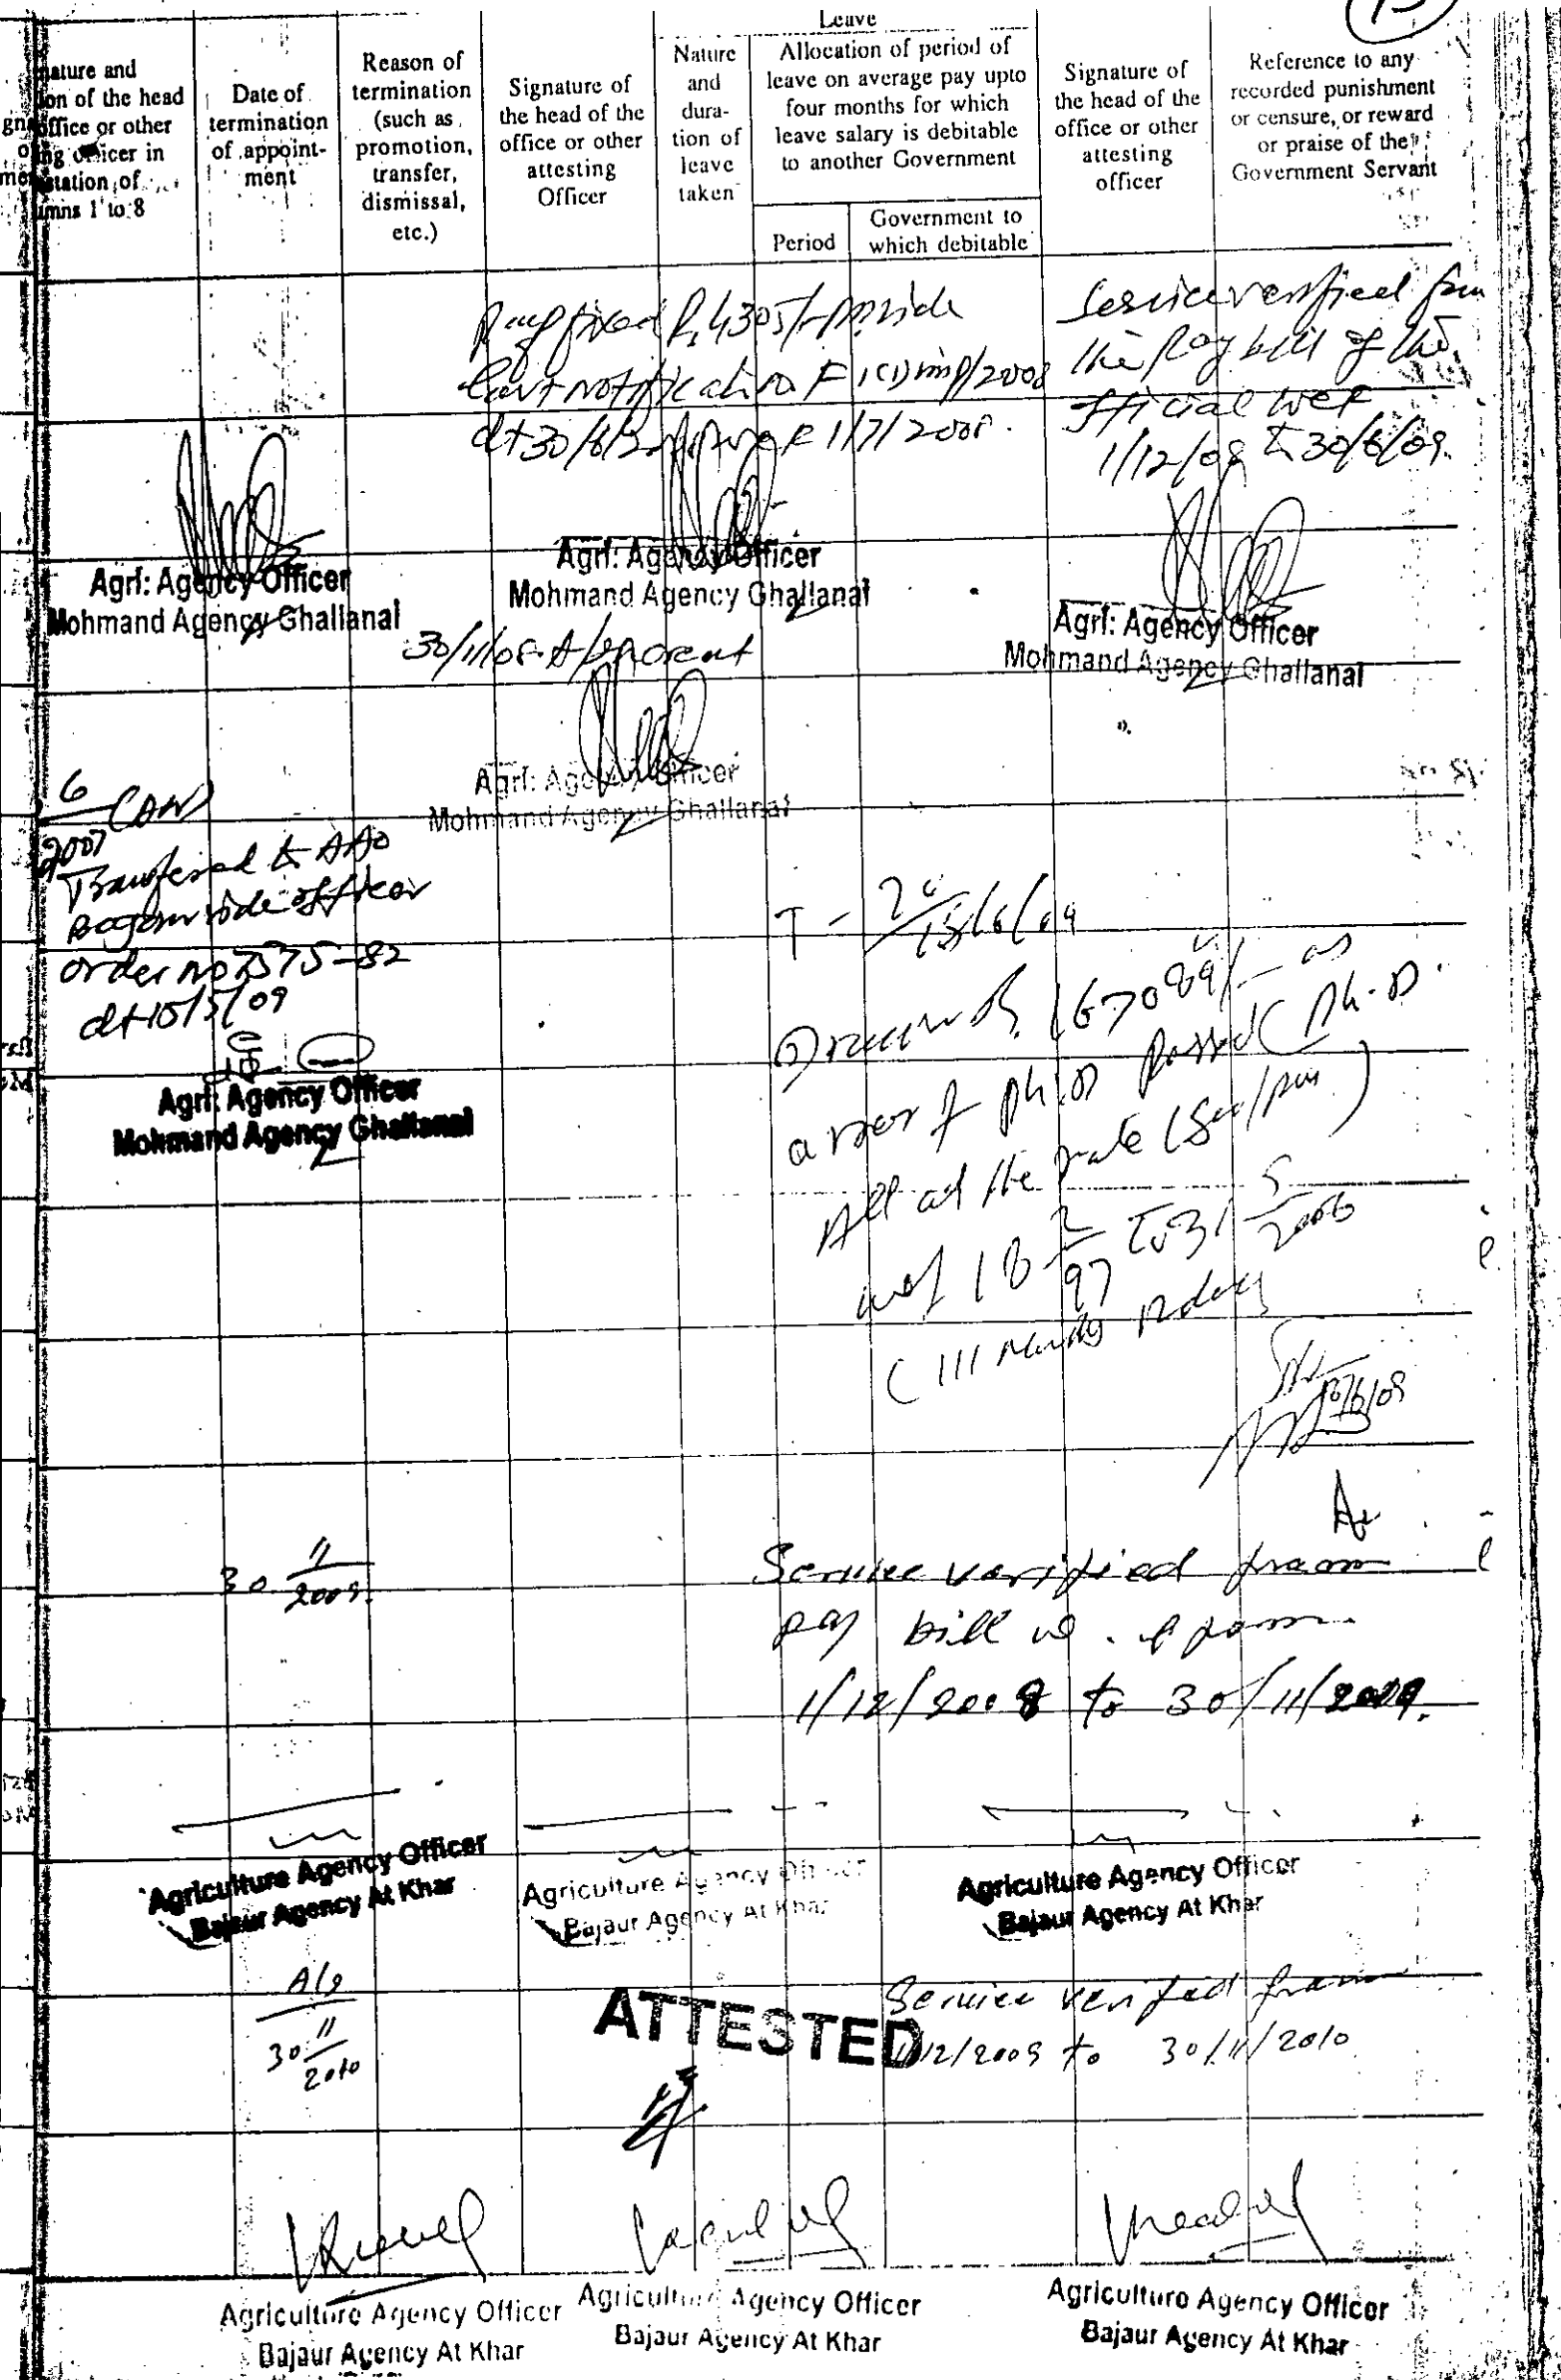 Leave
nature and
ion of the head
office or other
ing officer in
station of
umns 1 to 8
Date of
termination
of appoint-
ment
Reason of
termination
(such as
promotion,
transfer,
dismissal,
etc.)
Signature of
the head of the
office or other
attesting
Officer
Nature
and
dura-
tion of
leave
taken
Allocation of period of
leave on average pay upto
four months for which
leave salary is debitable
to another Government
Period
Government to
which debitable
Signature of
the head of the
office or other
attesting
officer
Reference to any
recorded punishment
or censure, or reward
or praise of the
Government Servant
Pay fixed
notification F 1(1)imp/2008
1/7/2008.
Service verified from
the Pay bill of the
official wef
1/12/08 to 30/6/09.
Agri: Agency Officer
Mohmand Agency Ghallanai
Agri: Agency Officer
Mohmand Agency Ghallanai
Agri: Agency Officer
Mohmand Agency Ghallanai
30/11/08
Agri: Agency Officer
Mohmand Agency Ghallanai
6
2007
Transferred to AAO
vide officer
order no 7575-82
dt 15/5/09
Agri: Agency Officer
Mohmand Agency Ghallanai
T -
15/6/09
167089/- as
arrer of Ph.D Passed (Ph.D.
All at the rate
wef 18 2/97 to 31 5/2006
(111 Months 12 days
30 11/2009.
Service verified from
pay bill
1/12/2008 to 30/11/2009.
Agriculture Agency Officer
Bajaur Agency At Khar
Agriculture Agency Officer
Bajaur Agency At Khar
Agriculture Agency Officer
Bajaur Agency At Khar
30 11/2010
ATTESTED
Service verified from
1/12/2009 to 30/11/2010
Agriculture Agency Officer
Bajaur Agency At Khar
Agriculture Agency Officer
Bajaur Agency At Khar
Agriculture Agency Officer
Bajaur Agency At Khar